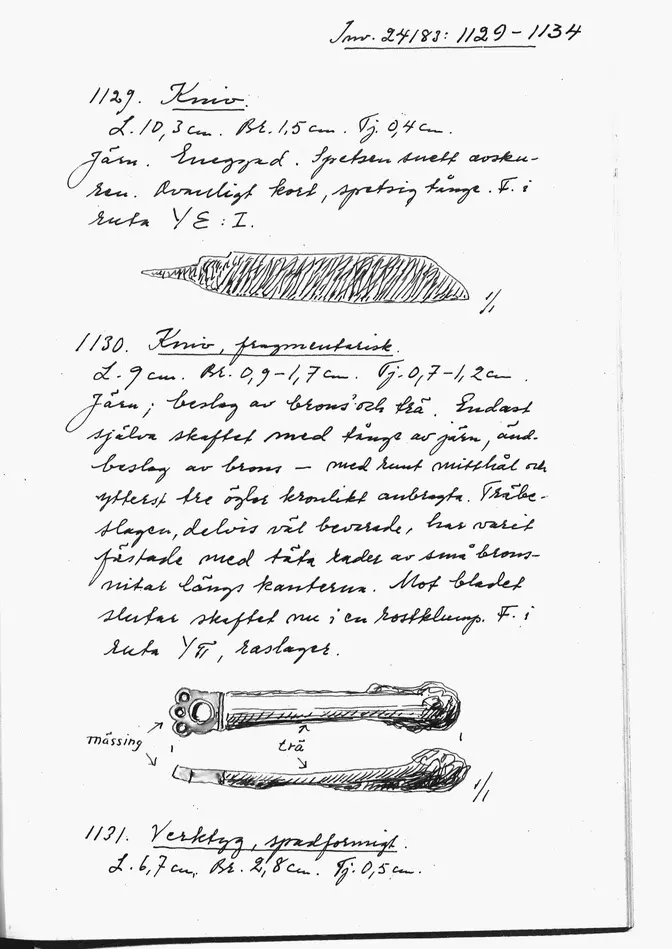 Inv. 24183: 1129-1134
1129. Kniv.
L. 10,3 cm. Br. 1,5 cm. Tj. 0,4 cm.
Järn. Eneggad. Spetsen snett avsku-
ren. Ovanligt kort, spetsig tånge. F. i
ruta YE: I.
1/1
1130. Kniv, fragmentarisk.
L. 9 cm. Br. 0,9-1,7 cm. Tj. 0,7-1,2 cm.
Järn; beslag av brons och trä. Endast
själva skaftet med tånge av järn, änd-
beslag av brons — med runt mitthål och
ytterst tre öglor kronlikt anbragta. Träbe-
slagen, delvis väl bevarade, har varit
fästade med täta rader av små brons-
nitar längs kanterna. Mot bladet
slutar skaftet nu i en rostklump. F. i
ruta Yπ, raslager.
mässing
trä
1/1
1131. Verktyg, spadformigt.
L. 6,7 cm. Br. 2,8 cm. Tj. 0,5 cm.